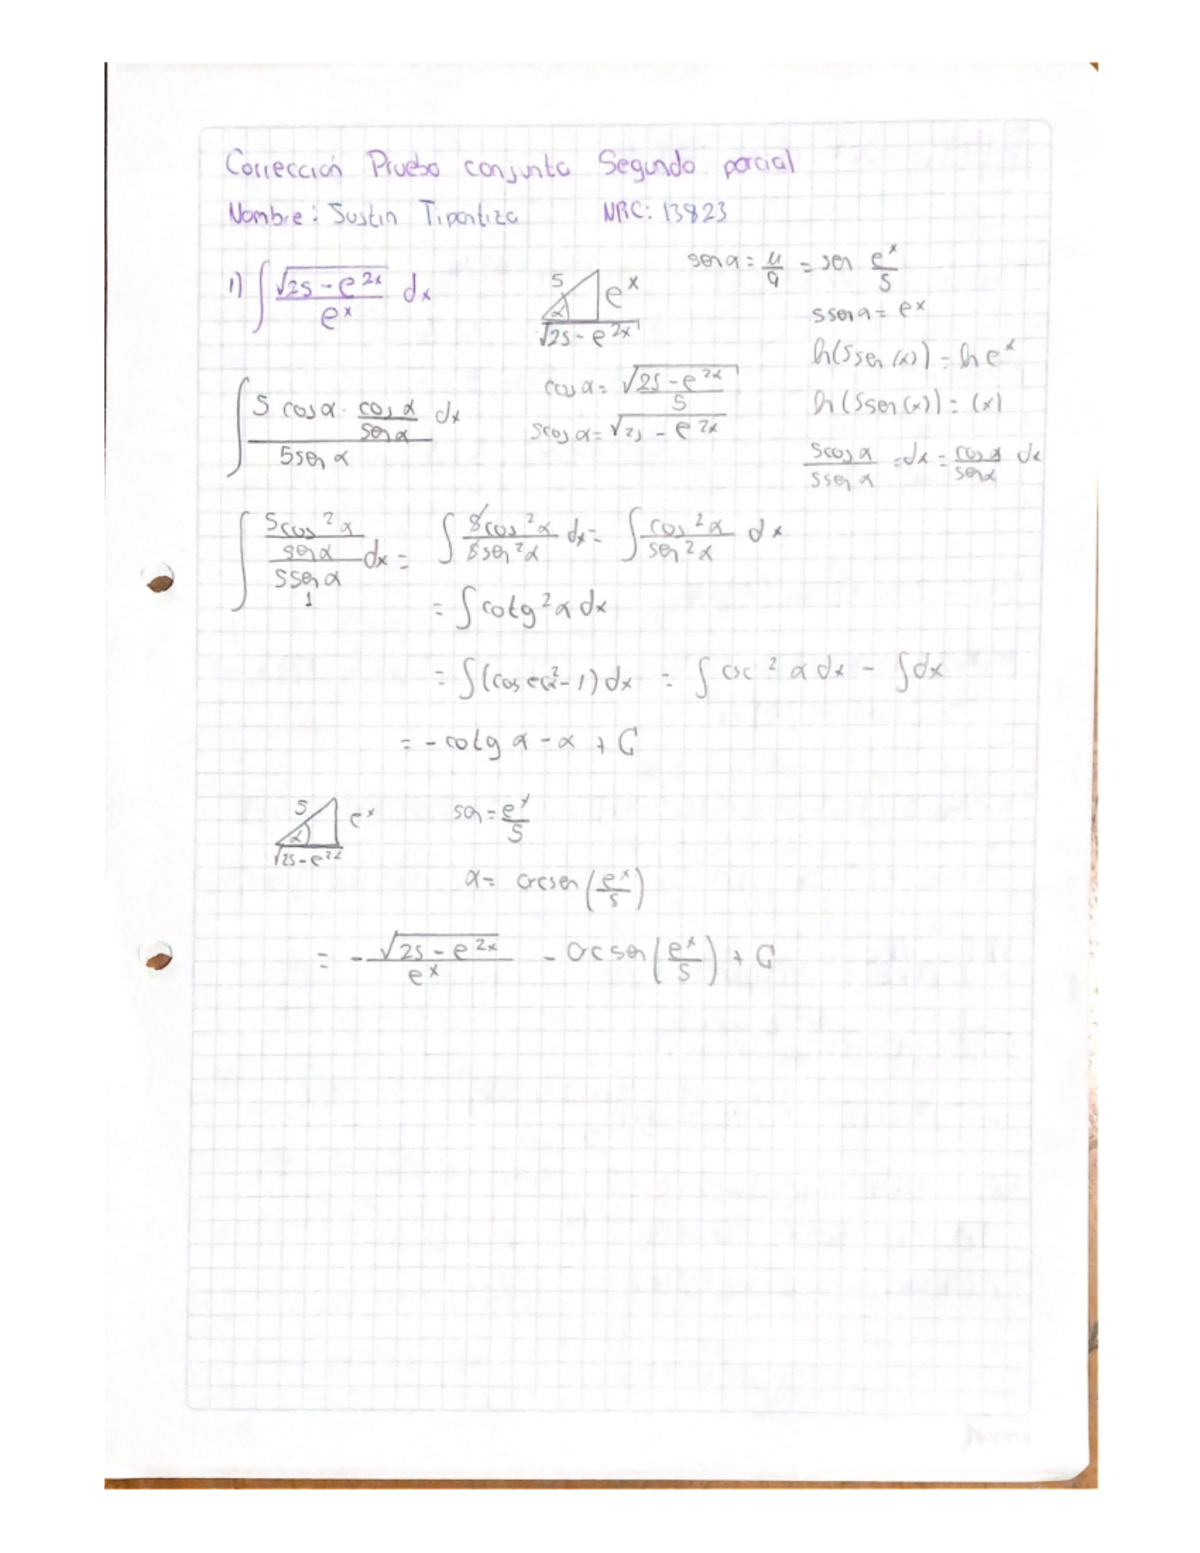 Corrección Prueba conjunta Segundo parcial
Nombre: Sustin Tipantiza NRC: 13823
1) ∫ √(25-e^2x) / e^x dx
5 e^x
α
√(25-e^2x)
sen α = μ/a = sen e^x/5
5 sen α = e^x
ln(5sen(α)) = ln e^x
ln(5sen(x)) = (x)
5cos α / 5sen α = dx = cos α / sen α dx
cos α = √(25-e^2x) / 5
5cos α = √(25-e^2x)
∫ (5 cos α · cos α / sen α dx) / 5sen α
∫ (5cos²α / sen α) / (5sen α / 1) dx = ∫ 5cos²α / 5sen²α dx = ∫ cos²α / sen²α dx
= ∫ cotg²α dx
= ∫ (cosec²α - 1) dx = ∫ csc²α dx - ∫ dx
= - cotg α - α + C
5 e^x
α
√(25-e^2x)
sen = e^x/5
α = arcsen (e^x/5)
= - √(25-e^2x) / e^x - arcsen (e^x/5) + C
Norma